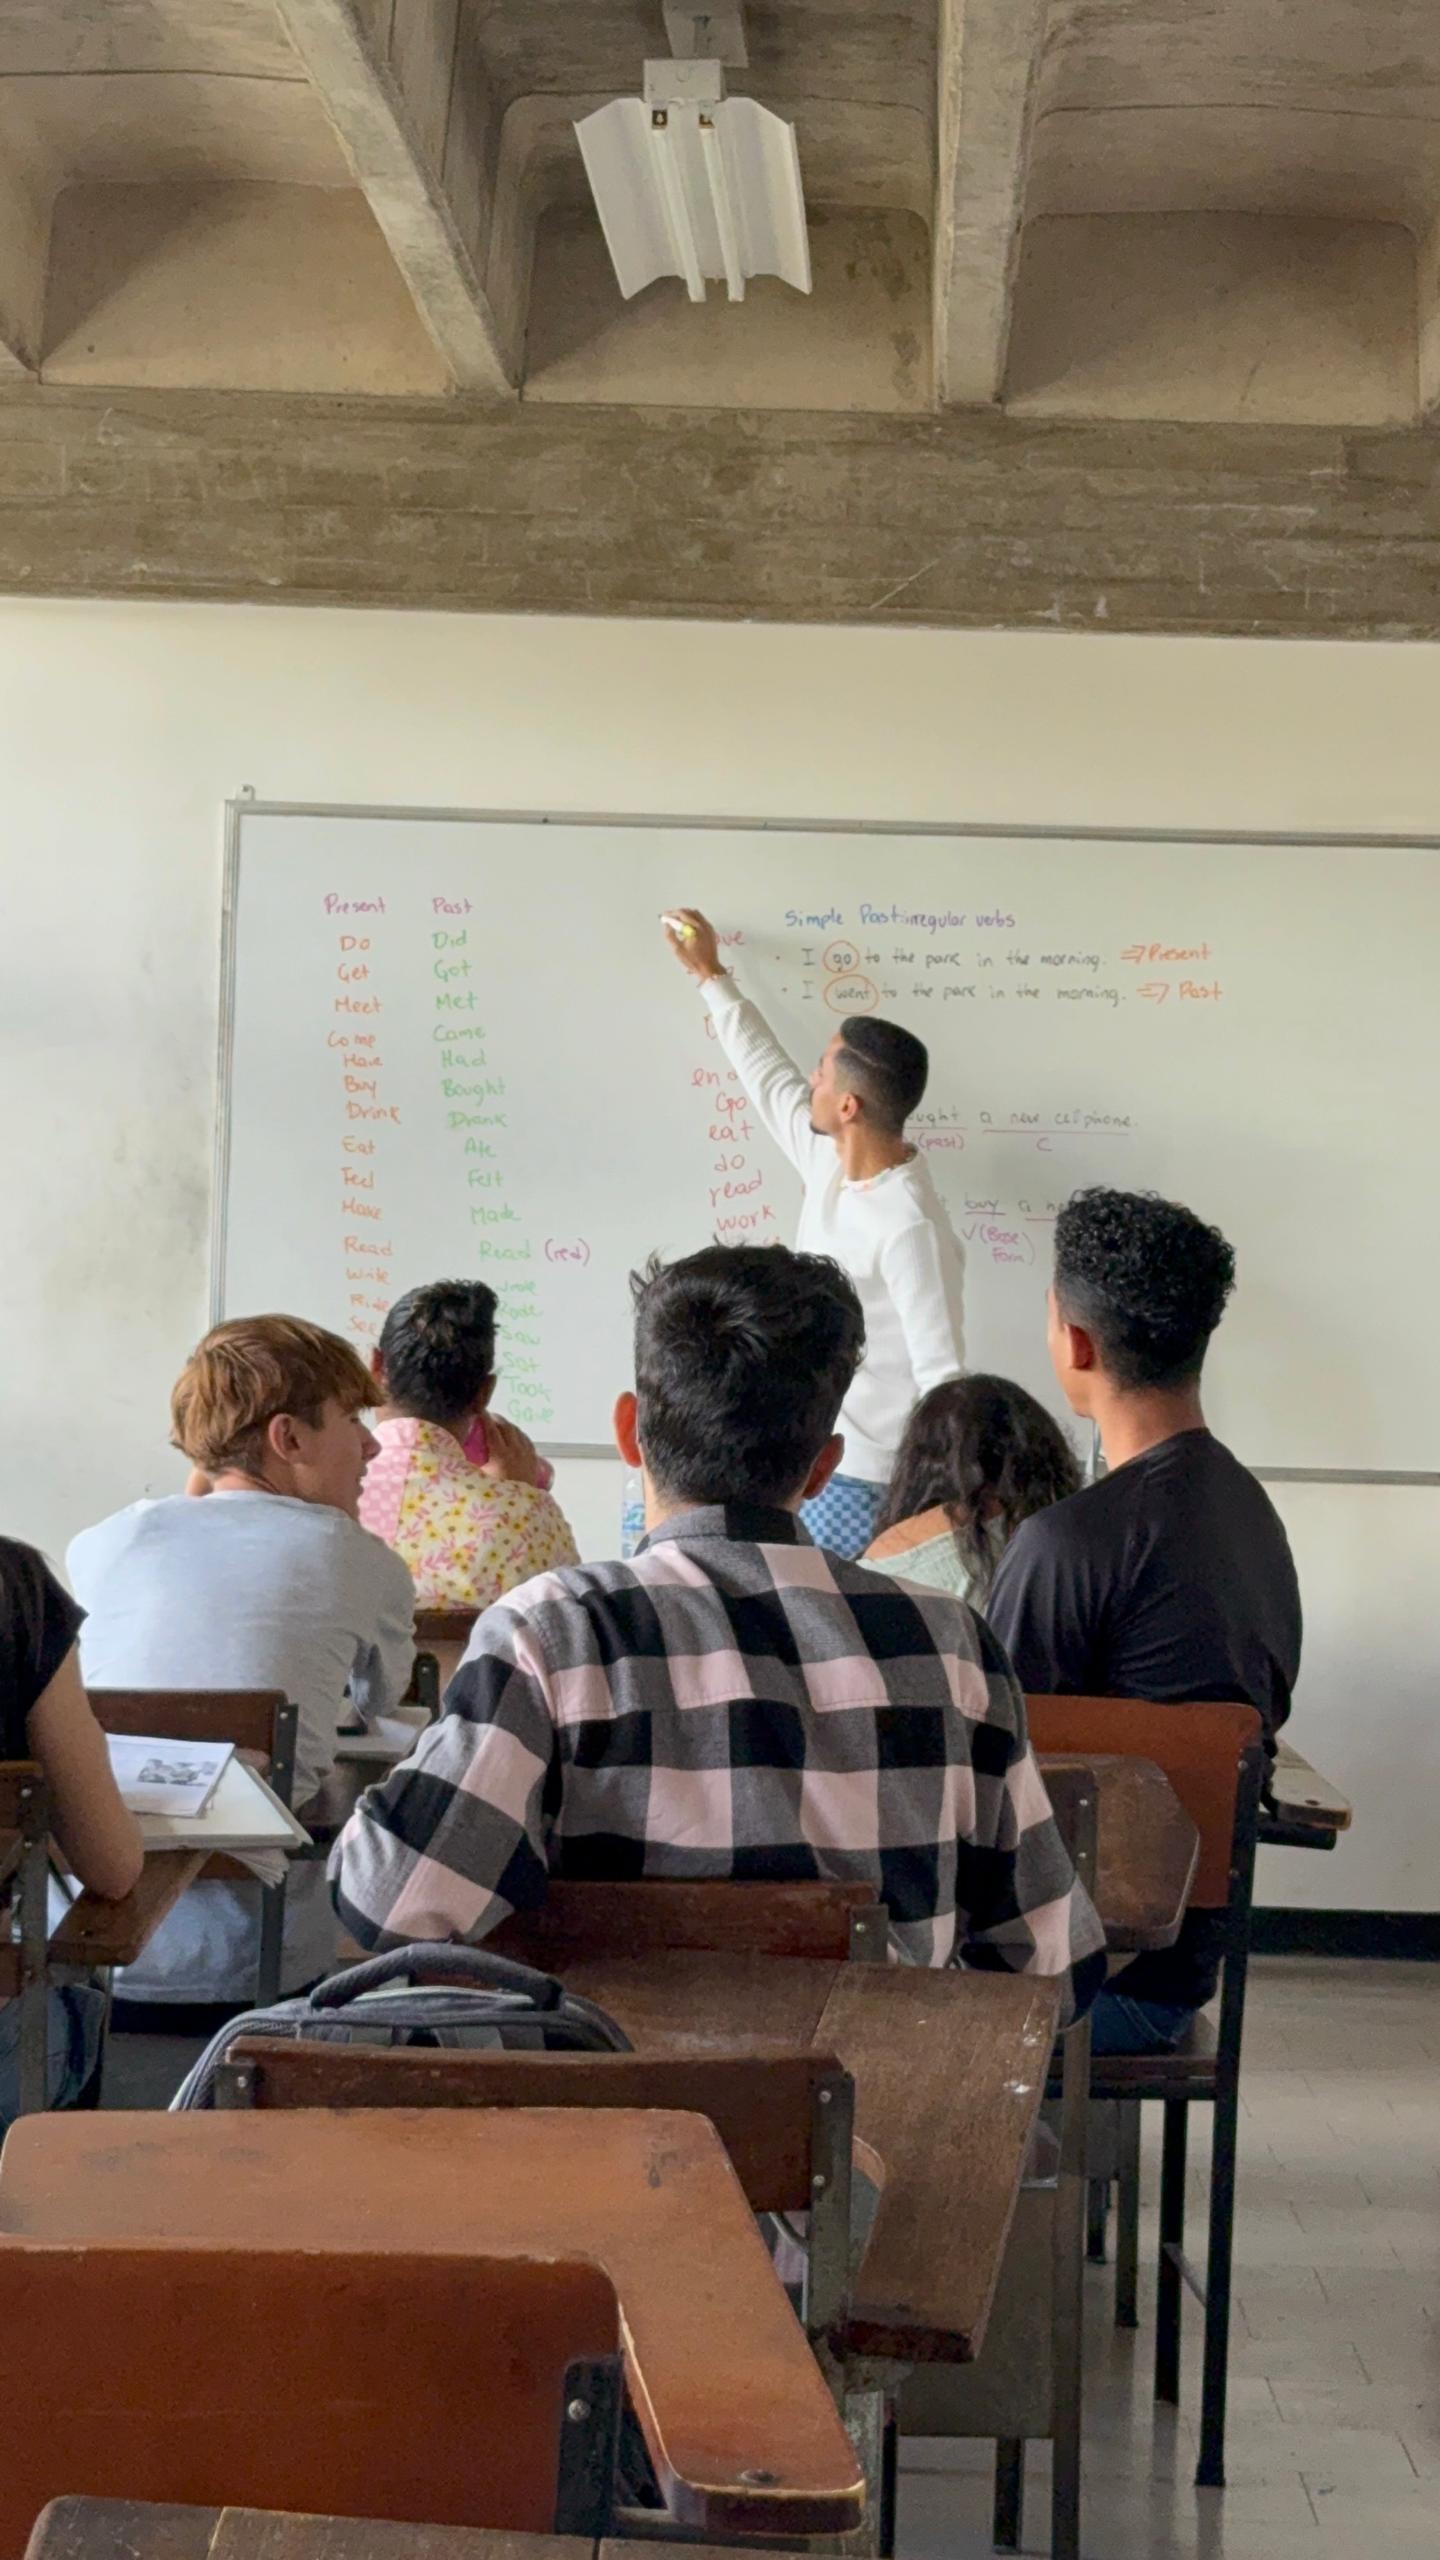 Present Past
Do Did
Get Got
Meet Met
Come Came
Have Had
Buy Bought
Drink Drank
Eat Ate
Feel Felt
Make Made
Read Read (red)
Write Wrote
Ride Rode
See Saw
Sat
Took
Gave
Go
eat
do
read
work
Simple Past: irregular verbs
• I go to the park in the morning. ⇒ Present
• I went to the park in the morning. ⇒ Past
a new cellphone.
(past) C
buy a
V (Base
Form)